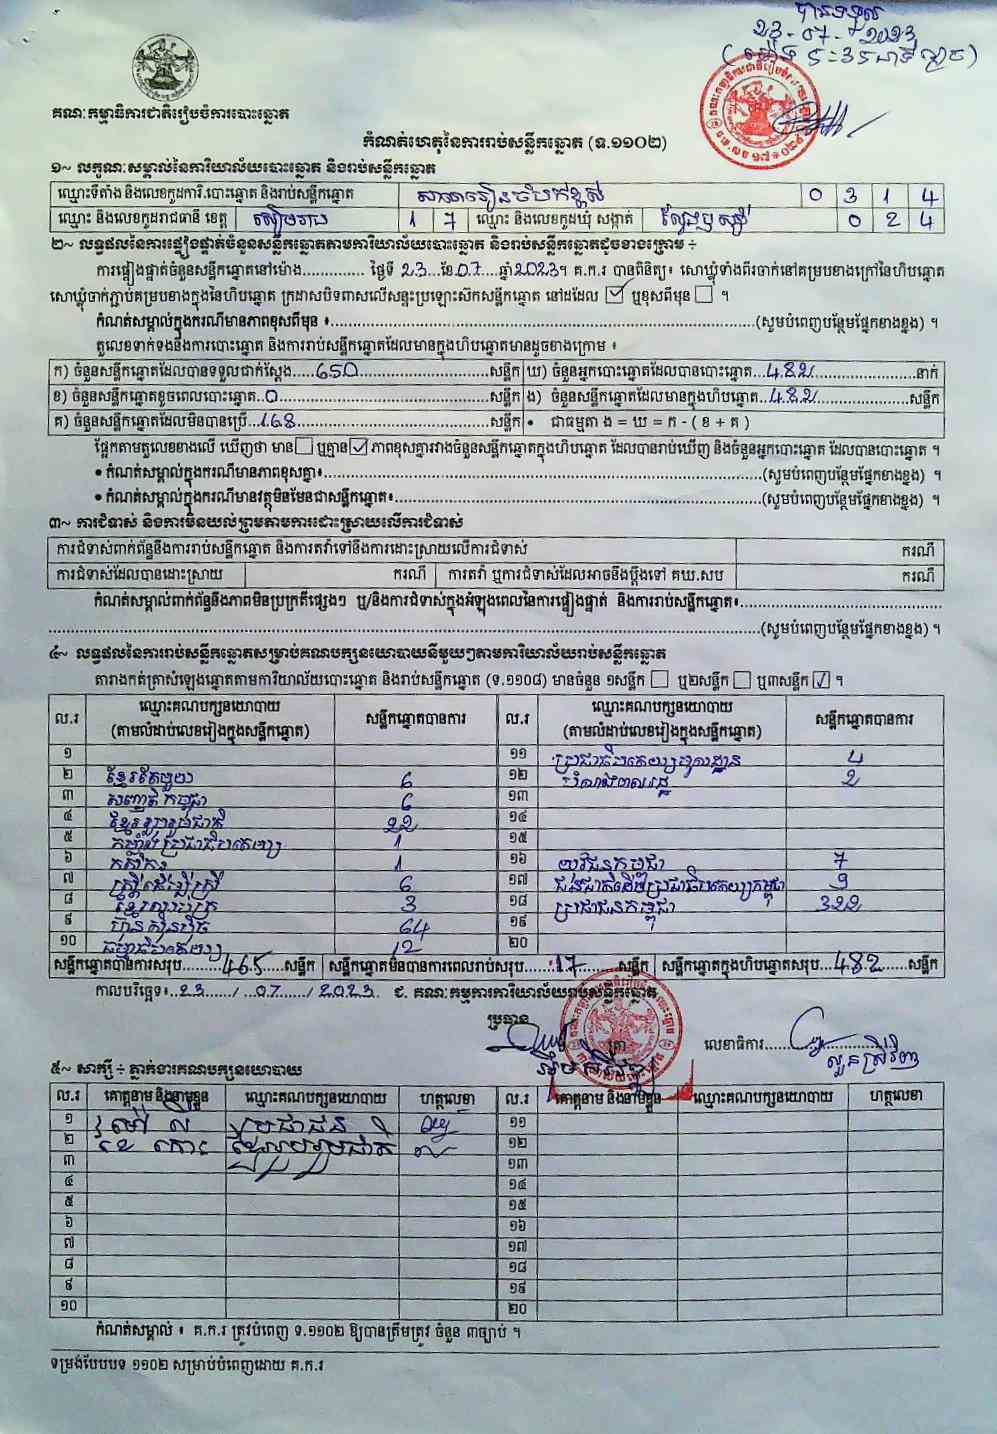 បានទទួល
23-07-2023
គណៈកម្មាធិការជាតិរៀបចំការបោះឆ្នោត
កំណត់ហេតុនៃការរាប់សន្លឹកឆ្នោត (ទ.១១០២)
១~ លក្ខណៈសម្គាល់នៃការិយាល័យបោះឆ្នោត និងរាប់សន្លឹកឆ្នោត
ឈ្មោះទីតាំង និងលេខកូដការិ.បោះឆ្នោត និងរាប់សន្លឹកឆ្នោត សាលារៀនចំបក់ខ្ពស់ 0 3 1 4
ឈ្មោះ និងលេខកូដរាជធានី ខេត្ត សៀមរាប 1 7 ឈ្មោះ និងលេខកូដឃុំ សង្កាត់ ស្វែងឫស្សី 0 2 4
២~ លទ្ធផលនៃការផ្ទៀងផ្ទាត់ចំនួនសន្លឹកឆ្នោតតាមការិយាល័យបោះឆ្នោត និងរាប់សន្លឹកឆ្នោតដូចខាងក្រោម ÷
ការផ្ទៀងផ្ទាត់ចំនួនសន្លឹកឆ្នោតនៅម៉ោង.............. ថ្ងៃទី 23...ខែ.07....ឆ្នាំ.2023។ គ.ក.រ បានពិនិត្យ៖ សោឃ្លុំទាំងពីរចាក់នៅគម្របខាងក្រៅនៃហិបឆ្នោត
សោឃ្លុំចាក់ភ្ជាប់គម្របខាងក្នុងនៃហិបឆ្នោត ក្រដាសបិទពាសលើសន្ទះប្រឡោះស៊កសន្លឹកឆ្នោត នៅដដែល ☑ ឬខុសពីមុន ☐ ។
កំណត់សម្គាល់ក្នុងករណីមានភាពខុសពីមុន ៖..............(សូមបំពេញបន្ថែមផ្នែកខាងខ្នង) ។
តួលេខទាក់ទងនឹងការបោះឆ្នោត និងការរាប់សន្លឹកឆ្នោតដែលមានក្នុងហិបឆ្នោតមានដូចខាងក្រោម ៖
ក) ចំនួនសន្លឹកឆ្នោតដែលបានទទួលជាក់ស្តែង....650..............សន្លឹក ឃ) ចំនួនអ្នកបោះឆ្នោតដែលបានបោះឆ្នោត...482..............នាក់
ខ) ចំនួនសន្លឹកឆ្នោតខូចពេលបោះឆ្នោត..0..............សន្លឹក ង) ចំនួនសន្លឹកឆ្នោតដែលមានក្នុងហិបឆ្នោត..482..............សន្លឹក
គ) ចំនួនសន្លឹកឆ្នោតដែលមិនបានប្រើ...168..............សន្លឹក • ជាធម្មតា ង = ឃ = ក - ( ខ + គ )
ផ្អែកតាមតួលេខខាងលើ ឃើញថា មាន ☐ ឬគ្មាន ☑ ភាពខុសគ្នារវាងចំនួនសន្លឹកឆ្នោតក្នុងហិបឆ្នោត ដែលបានរាប់ឃើញ និងចំនួនអ្នកបោះឆ្នោត ដែលបានបោះឆ្នោត ។
• កំណត់សម្គាល់ក្នុងករណីមានភាពខុសគ្នា៖..............(សូមបំពេញបន្ថែមផ្នែកខាងខ្នង) ។
• កំណត់សម្គាល់ក្នុងករណីមានវត្ថុមិនមែនជាសន្លឹកឆ្នោត៖..............(សូមបំពេញបន្ថែមផ្នែកខាងខ្នង) ។
៣~ ការជំទាស់ និងការមិនយល់ព្រមតាមការដោះស្រាយលើការជំទាស់
ការជំទាស់ពាក់ព័ន្ធនឹងការរាប់សន្លឹកឆ្នោត និងការតវ៉ាទៅនឹងការដោះស្រាយលើការជំទាស់ ករណី
ការជំទាស់ដែលបានដោះស្រាយ ករណី ការតវ៉ា ឬការជំទាស់ដែលអាចនឹងប្តឹងទៅ គឃ.សប ករណី
កំណត់សម្គាល់ពាក់ព័ន្ធនឹងភាពមិនប្រក្រតីផ្សេងៗ ឬ/និងការជំទាស់ក្នុងអំឡុងពេលនៃការផ្ទៀងផ្ទាត់ និងការរាប់សន្លឹកឆ្នោត៖..............
..............(សូមបំពេញបន្ថែមផ្នែកខាងខ្នង) ។
៤~ លទ្ធផលនៃការរាប់សន្លឹកឆ្នោតសម្រាប់គណបក្សនយោបាយនីមួយៗតាមការិយាល័យរាប់សន្លឹកឆ្នោត
តារាងកត់ត្រាសំឡេងឆ្នោតតាមការិយាល័យបោះឆ្នោត និងរាប់សន្លឹកឆ្នោត (ទ.១១០៨) មានចំនួន ១សន្លឹក ☐ ឬ២សន្លឹក ☐ ឬ៣សន្លឹក ☑ ។
ល.រ ឈ្មោះគណបក្សនយោបាយ (តាមលំដាប់លេខរៀងក្នុងសន្លឹកឆ្នោត) សន្លឹកឆ្នោតបានការ ល.រ ឈ្មោះគណបក្សនយោបាយ (តាមលំដាប់លេខរៀងក្នុងសន្លឹកឆ្នោត) សន្លឹកឆ្នោតបានការ
១ ១១ ប្រជាធិបតេយ្យមូលដ្ឋាន 4
២ ខ្មែរតែមួយ 6 ១២ 2
៣ សញ្ជាតិកម្ពុជា 6 ១៣
៤ ខ្មែររួបរួមជាតិ 22 ១៤
៥ កម្លាំងប្រជាធិបតេយ្យ 1 ១៥
៦ កសិករ 1 ១៦ យុវជនកម្ពុជា 7
៧ ស្ត្រីដើម្បីស្ត្រី 6 ១៧ ជនជាតិដើមប្រជាធិបតេយ្យកម្ពុជា 9
៨ 3 ១៨ ប្រជាជនកម្ពុជា 322
៩ ហ៊្វុនស៊ិនប៉ិច 64 ១៩
១០ ធម្មាធិបតេយ្យ 12 ២០
សន្លឹកឆ្នោតបានការសរុប.........465......សន្លឹក សន្លឹកឆ្នោតមិនបានការពេលរាប់សរុប.......17.......សន្លឹក សន្លឹកឆ្នោតក្នុងហិបឆ្នោតសរុប...482.......សន្លឹក
កាលបរិច្ឆេទ៖..23....../...07...../...2023. ជ. គណៈកម្មការការិយាល័យរាប់សន្លឹកឆ្នោត
ប្រធាន
ត្រា លេខាធិការ..............
៥~ សាក្សី ÷ ភ្នាក់ងារគណបក្សនយោបាយ
ល.រ គោត្តនាម និងនាមខ្លួន ឈ្មោះគណបក្សនយោបាយ ហត្ថលេខា ល.រ គោត្តនាម និងនាមខ្លួន ឈ្មោះគណបក្សនយោបាយ ហត្ថលេខា
១ ប្រជាជន ១១
២ ខ្មែររួបរួមជាតិ ១២
៣ ១៣
៤ ១៤
៥ ១៥
៦ ១៦
៧ ១៧
៨ ១៨
៩ ១៩
១០ ២០
កំណត់សម្គាល់ ៖ គ.ក.រ ត្រូវបំពេញ ទ.១១០២ ឱ្យបានត្រឹមត្រូវ ចំនួន ៣ច្បាប់ ។
ទម្រង់បែបបទ ១១០២ សម្រាប់បំពេញដោយ គ.ក.រ